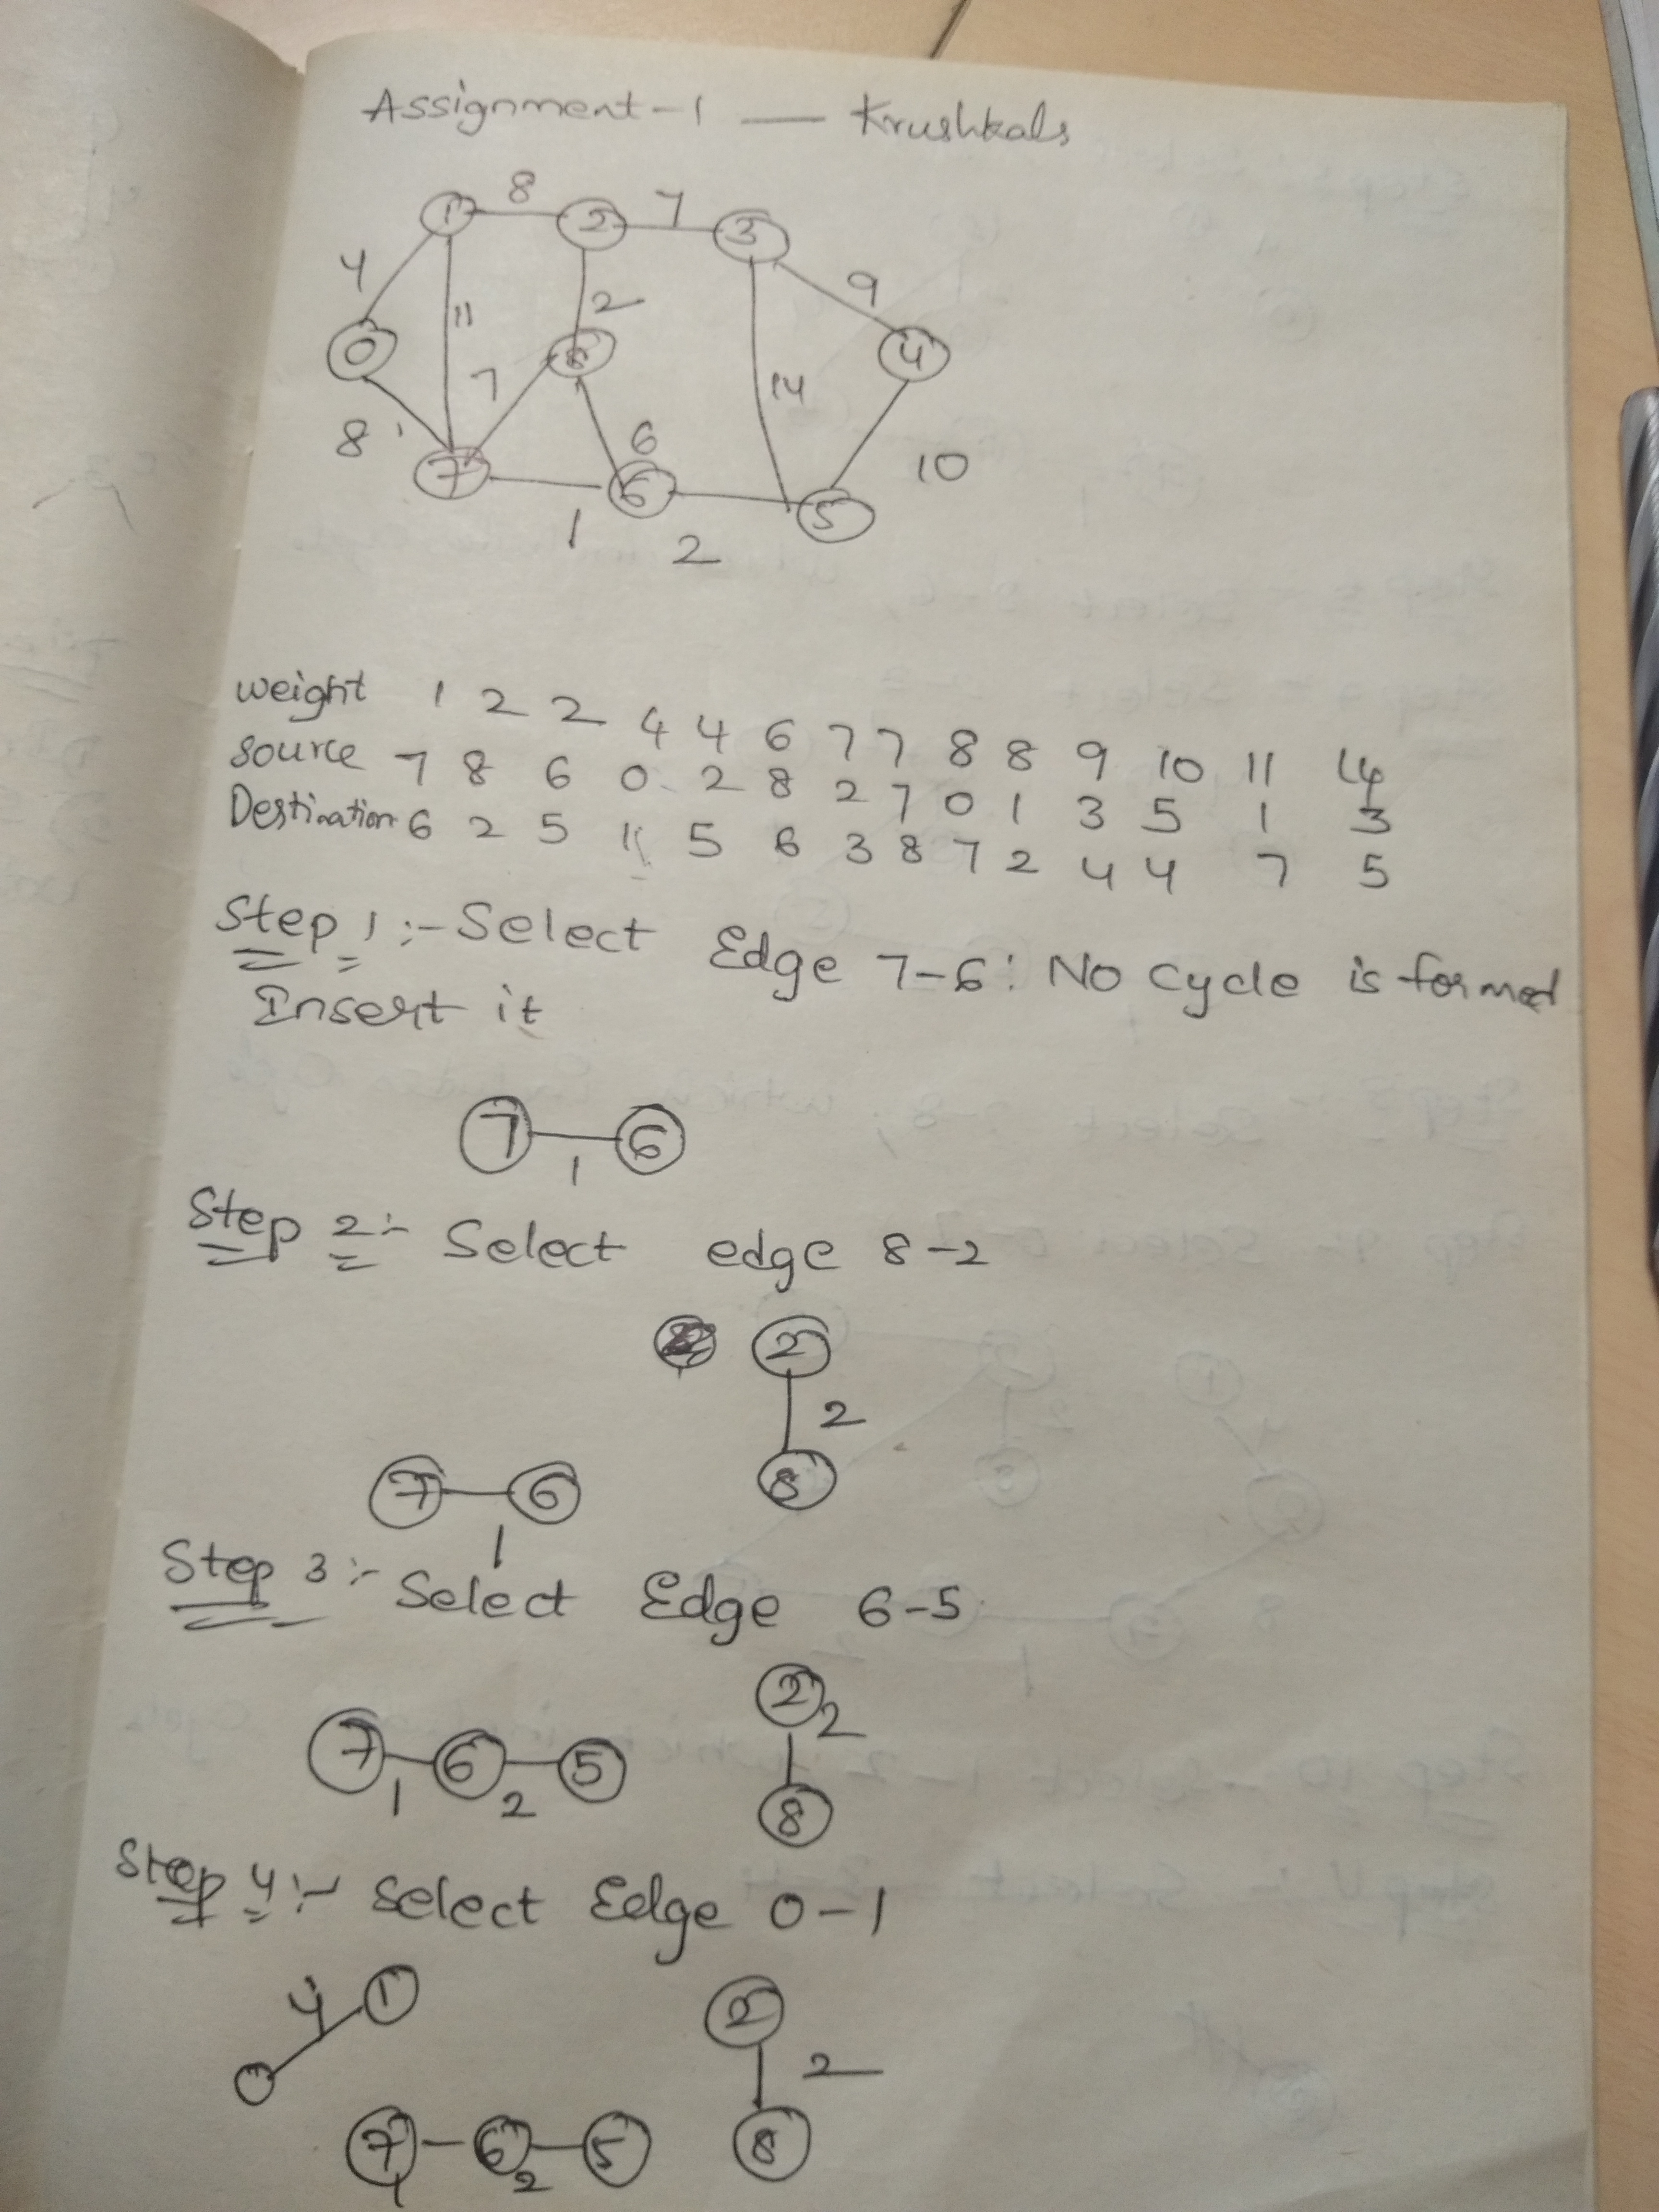 Assignment-1 — Krushkals
8 7
1 2 3
4 11 2 9
0 8 4
7 14
8 6 10
7 6 5
1 2
weight 1 2 2 4 4 6 7 7 8 8 9 10 11 14
source 7 8 6 0 2 8 2 7 0 1 3 5 1 3
Destination 6 2 5 1 5 6 3 8 7 2 4 4 7 5
Step 1:- Select Edge 7-6: No cycle is formed
Insert it
7 6
1
Step 2:- Select edge 8-2
2
2
7 6 8
1
Step 3:- Select Edge 6-5
2 2
7 6 5
1 2 8
Step 4:- Select Edge 0-1
4 1 2
0 2
7 6 5 8
1 2